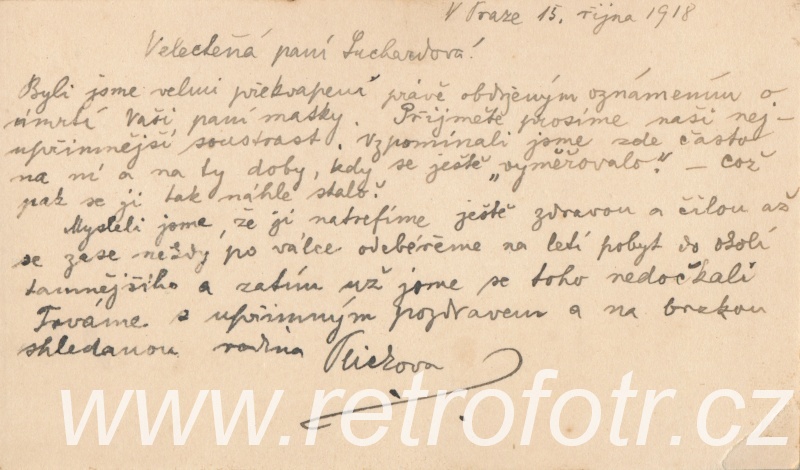 V Praze 15. října 1918
Velectěná paní Suchardová!
Byli jsme velmi překvapeni právě obdrženým oznámením o
úmrtí Vaší paní matky. Přijměte prosíme naši nej-
upřímnější soustrast. Vzpomínali jsme zde často
na ní a na ty doby, kdy se ještě „vyměřovalo". – Což
pak se jí tak náhle stalo?
Mysleli jsme, že ji natrefíme ještě zdravou a čilou až
se zase někdy po válce odebéřeme na letí pobyt do okolí
tamnějšího a zatím už jsme se toho nedočkali
Trváme s upřímným pozdravem a na brzkou
shledanou rodina
www.retrofotr.cz